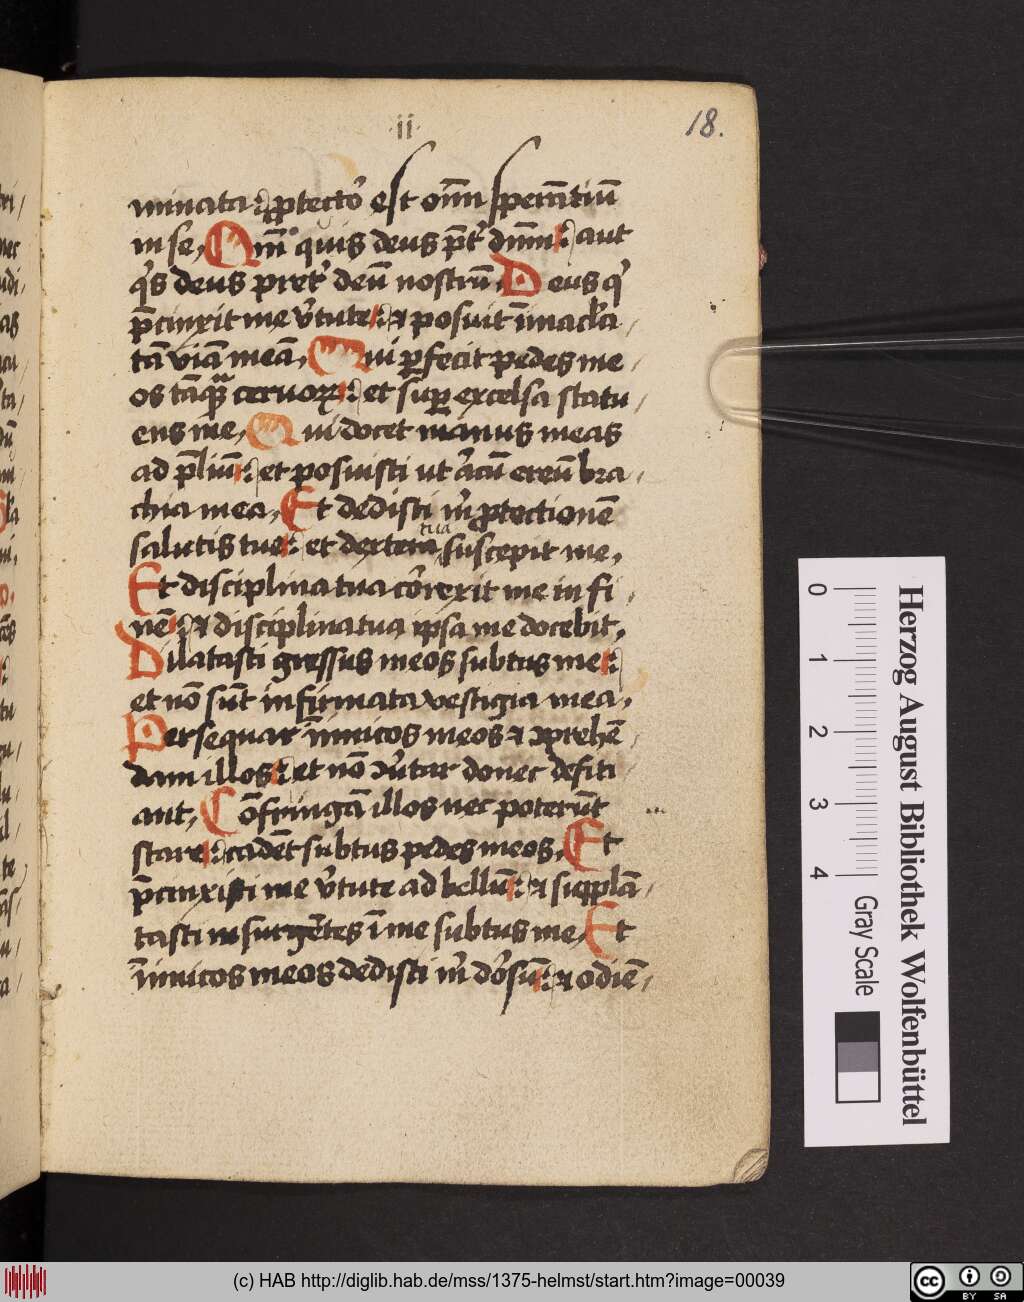 ·ii·
18.
minata: ꝓtectoʼ est om̄n sperātiū
in se, Qm̄ quis deus p̄tʼ dnm̄: aut
qʼs deus pretʼ deū nostrū, Deus qʼ
p̄cinxit me vʼtute: ⁊ posuit ī̄macl̓a
tā viā meā, Qui ꝑfecit pedes me
os tāqᷓ ceruoꝝ: et suꝑ excelsa statu
ens me, Qui docet manus meas
ad p̄liū: et posuisti ut aʼcū ereū bra
chia mea, Et dedisti mʼ ꝓtectionē
salutis tue: et dextera tua suscepit me,
Et disciplina tua coʼrexit me in fi
nē: ⁊ disciplina tua ipsa me docebit,
Dilatasti gressus meos subtus me:
et nō sūt infirmata vestigia mea,
Persequar īimicos meos ⁊ ꝯprehē
dam illos: et nō ꝯuʼtar donec defici
ant, Cōfringā illos nec poterūt
stare: cadēt subtus pedes meos, Et
p̄cinxisti me vʼtute ad bellū: ⁊ supplā
tasti insurgētes ī me subtus me, Et
īimicos meos dedisti mʼ doʼsū: ⁊ odiē
0 1 2 3 4
Gray Scale
Herzog August Bibliothek Wolfenbüttel
(c) HAB http://diglib.hab.de/mss/1375-helmst/start.htm?image=00039
cc BY SA